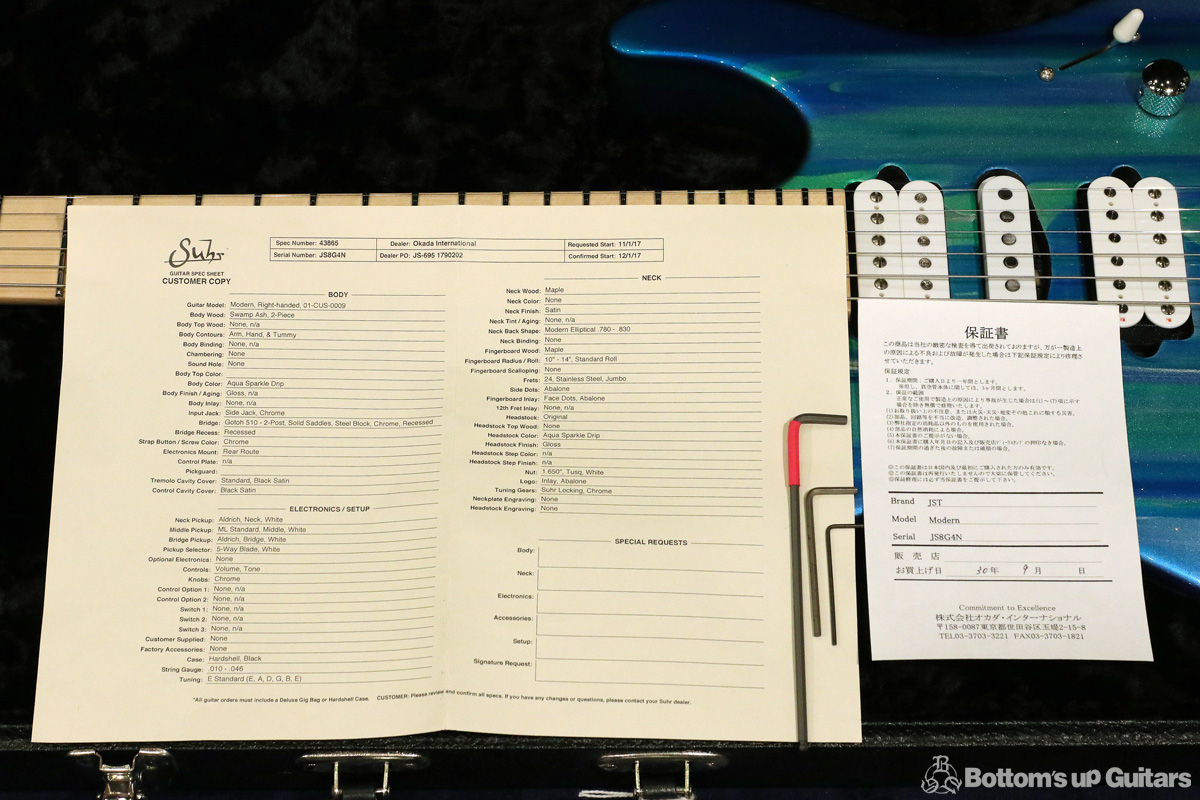 Suhr
GUITAR SPEC SHEET
CUSTOMER COPY
Spec Number: 43865
Dealer: Okada International
Requested Start: 11/1/17
Serial Number: JS8G4N
Dealer PO: JS-695 1790202
Confirmed Start: 12/1/17
BODY
Guitar Model: Modern, Right-handed, 01-CUS-0009
Body Wood: Swamp Ash, 2-Piece
Body Top Wood: None, n/a
Body Contours: Arm, Hand, & Tummy
Body Binding: None, n/a
Chambering: None
Sound Hole: None
Body Top Color:
Body Color: Aqua Sparkle Drip
Body Finish / Aging: Gloss, n/a
Body Inlay: None, n/a
Input Jack: Side Jack, Chrome
Bridge: Gotoh 510 - 2-Post, Solid Saddles, Steel Block, Chrome, Recessed
Bridge Recess: Recessed
Strap Button / Screw Color: Chrome
Electronics Mount: Rear Route
Control Plate: n/a
Pickguard:
Tremolo Cavity Cover: Standard, Black Satin
Control Cavity Cover: Black Satin
ELECTRONICS / SETUP
Neck Pickup: Aldrich, Neck, White
Middle Pickup: ML Standard, Middle, White
Bridge Pickup: Aldrich, Bridge, White
Pickup Selector: 5-Way Blade, White
Optional Electronics: None
Controls: Volume, Tone
Knobs: Chrome
Control Option 1: None, n/a
Control Option 2: None, n/a
Switch 1: None, n/a
Switch 2: None, n/a
Switch 3: None, n/a
Customer Supplied: None
Factory Accessories: None
Case: Hardshell, Black
String Gauge: .010 - .046
Tuning: E Standard (E, A, D, G, B, E)
NECK
Neck Wood: Maple
Neck Color: None
Neck Finish: Satin
Neck Tint / Aging: None, n/a
Neck Back Shape: Modern Elliptical .780 - .830
Neck Binding: None
Fingerboard Wood: Maple
Fingerboard Radius / Roll: 10" - 14", Standard Roll
Fingerboard Scalloping: None
Frets: 24, Stainless Steel, Jumbo
Side Dots: Abalone
Fingerboard Inlay: Face Dots, Abalone
12th Fret Inlay: None, n/a
Headstock: Original
Headstock Top Wood: None
Headstock Color: Aqua Sparkle Drip
Headstock Finish: Gloss
Headstock Step Color: n/a
Headstock Step Finish: n/a
Nut: 1.650", Tusq, White
Logo: Inlay, Abalone
Tuning Gears: Suhr Locking, Chrome
Neckplate Engraving: None
Headstock Engraving: None
SPECIAL REQUESTS
Body:
Neck:
Electronics:
Accessories:
Setup:
Signature Request:
*All guitar orders must include a Deluxe Gig Bag or Hardshell Case. CUSTOMER: Please review and confirm all specs. If you have any changes or questions, please contact your Suhr dealer.
保証書
この商品は当社の厳密な検査を得て出荷されておりますが、万が一製造上
の原因による不良および故障が発生した場合は下記保証規定により修理さ
せていただきます。
保証規定
1. 保証期間:ご購入日より一年間とします。
2. 保証の範囲
◎この保証書は日本国内及び最初にご購入された方のみ有効です。
◎この保証書は再発行いたしませんので大切に保管してください。
◎保証修理には必ず当保証書をご提示下さい。
Brand JST
Model Modern
Serial JS8G4N
販売店
お買上げ日 30年 9月 日
Commitment to Excellence
株式会社オカダ・インターナショナル
〒158-0087東京都世田谷区玉堤2-15-8
TEL03-3703-3221 FAX03-3703-1821
Bottom's up Guitars